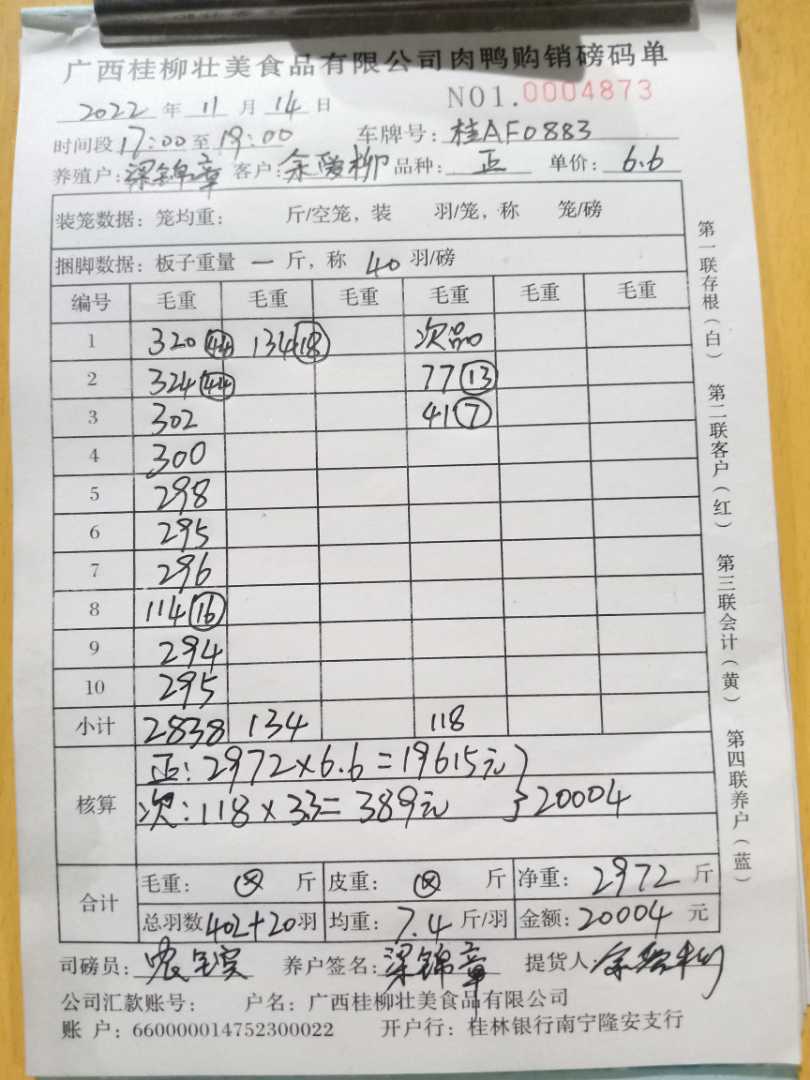 广西桂柳壮美食品有限公司肉鸭购销磅码单
2022 年 11 月 14 日 NO1.0004873
时间段 17:00 至 19:00 车牌号: 桂AF0883
养殖户: 梁锦章 客户: 余爱柳 品种: 正 单价: 6.6
装笼数据: 笼均重: 斤/空笼, 装 羽/笼, 称 笼/磅
捆脚数据: 板子重量 一 斤, 称 40 羽/磅
编号 毛重 毛重 毛重 毛重 毛重 毛重
1 320 44 134 18 次品
2 324 44 77 13
3 302 41 7
4 300
5 298
6 295
7 296
8 114 16
9 294
10 295
小计 2838 134 118
核算
正: 2972×6.6=19615元
次: 118×3.3=389元 } 20004
合计
毛重: 斤 皮重: 斤 净重: 2972 斤
总羽数 402+20 羽 均重: 7.4 斤/羽 金额: 20004 元
司磅员: 养户签名: 梁锦章 提货人: 余爱柳
公司汇款账号: 户名: 广西桂柳壮美食品有限公司
账 户: 660000014752300022 开户行: 桂林银行南宁隆安支行
第一联存根(白) 第二联客户(红) 第三联会计(黄) 第四联养户(蓝)